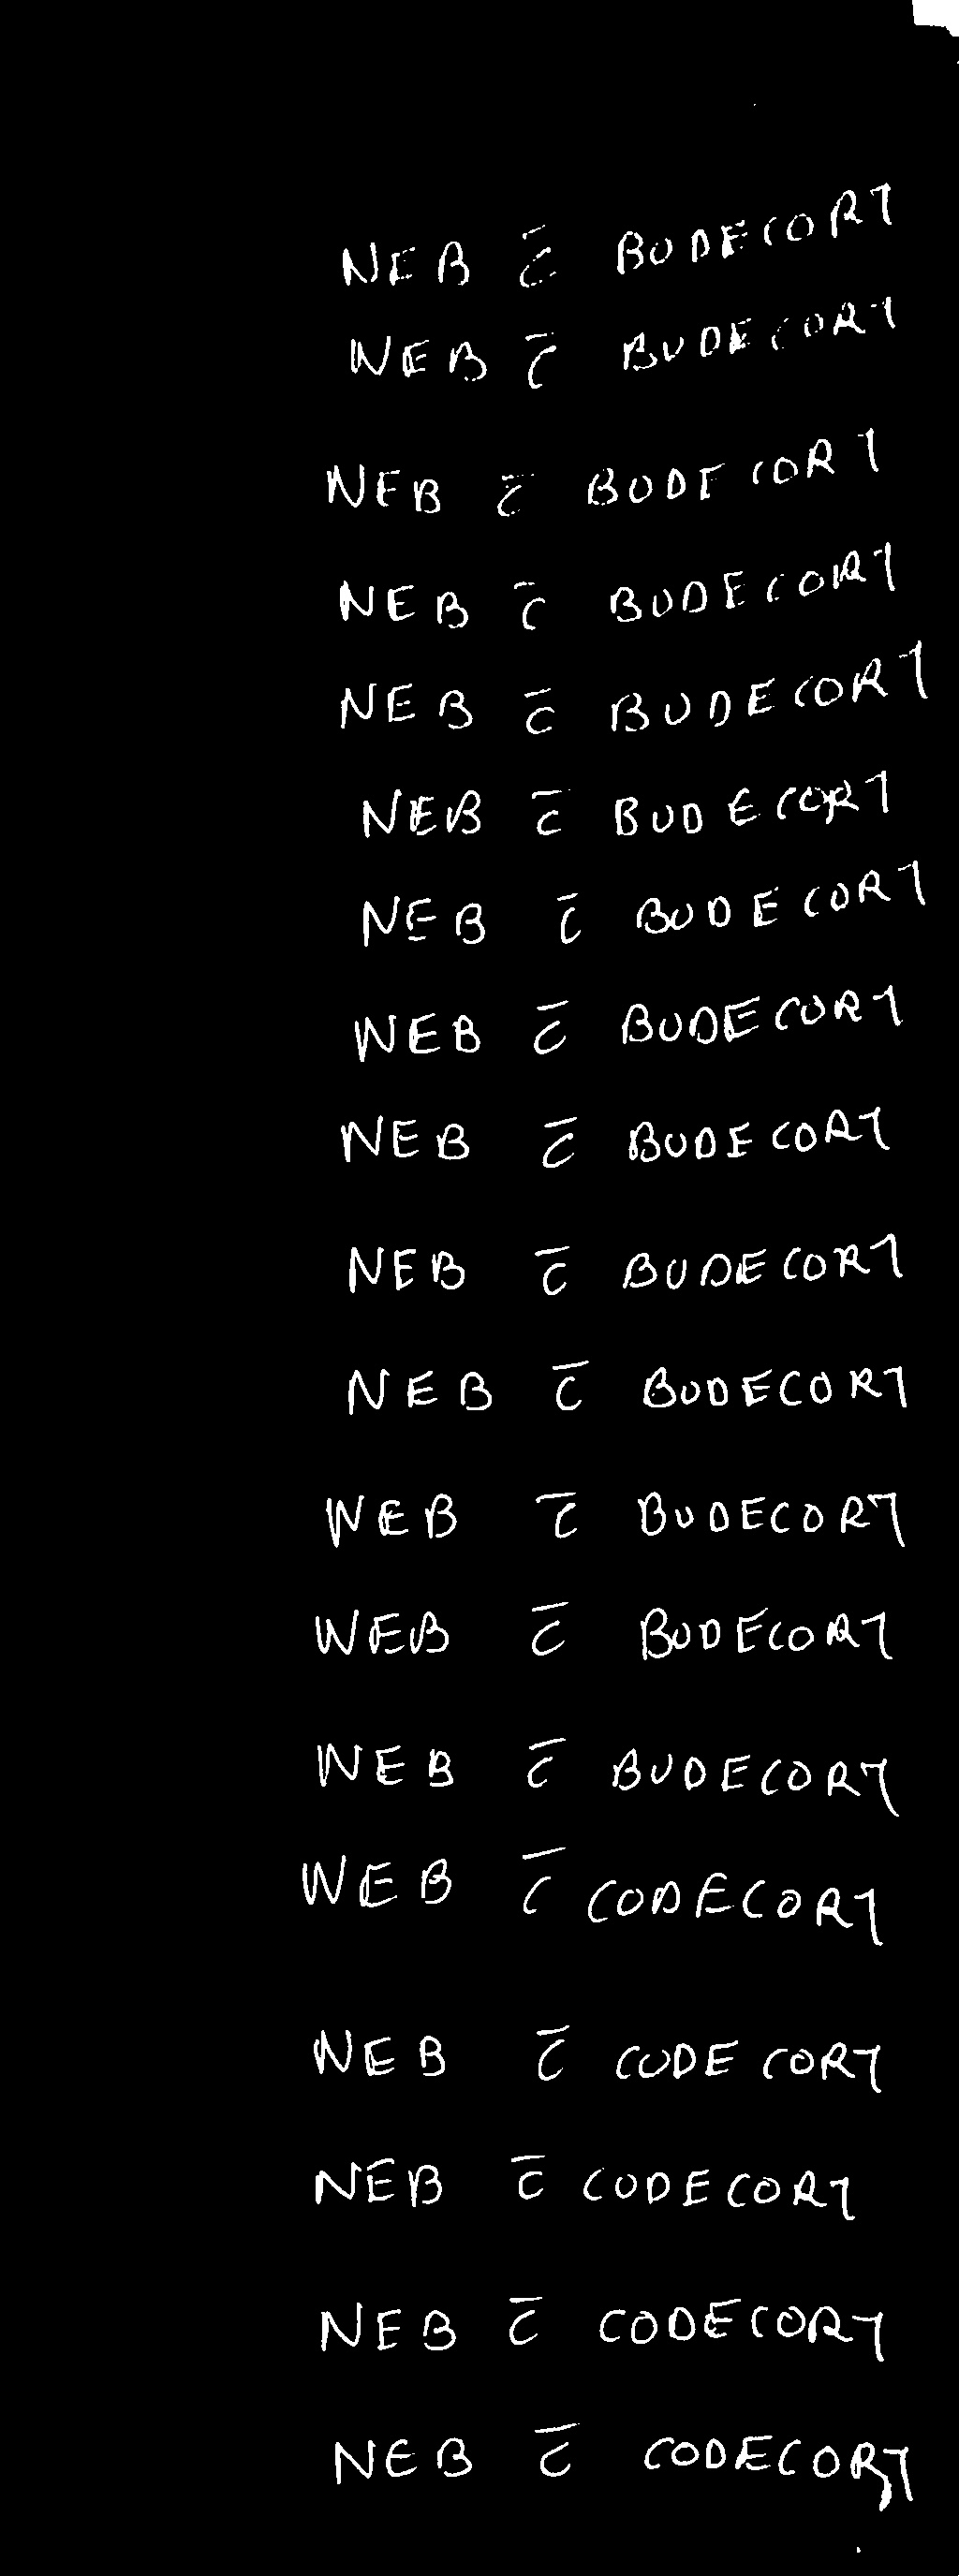 NEB c̄ BUDECORT
NEB c̄ BUDECORT
NEB c̄ BUDECORT
NEB c̄ BUDECORT
NEB c̄ BUDECORT
NEB c̄ BUDECORT
NEB c̄ BUDECORT
NEB c̄ BUDECORT
NEB c̄ BUDECORT
NEB c̄ BUDECORT
NEB c̄ BUDECORT
NEB c̄ BUDECORT
NEB c̄ BUDECORT
NEB c̄ BUDECORT
NEB c̄ CODECORT
NEB c̄ CUDECORT
NEB c̄ CUDECORT
NEB c̄ CODECORT
NEB c̄ CODECORT